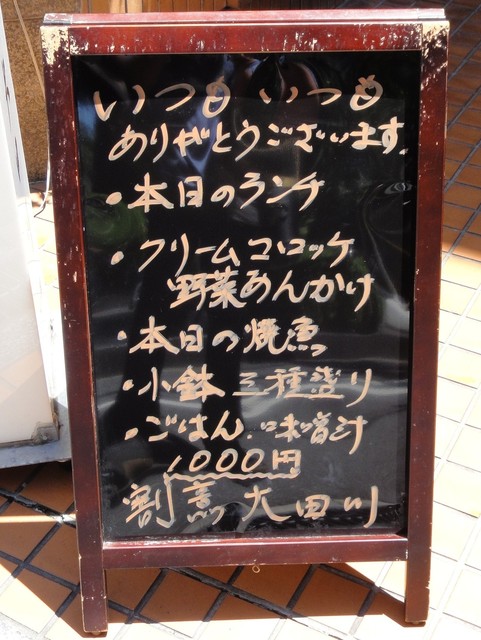 いつも いつも
ありがとうございます。
・本日のランチ
・クリームコロッケ
野菜あんかけ
・本日の焼魚
・小鉢 三種盛り
・ごはん、味噌汁
1000円
割烹 大田川